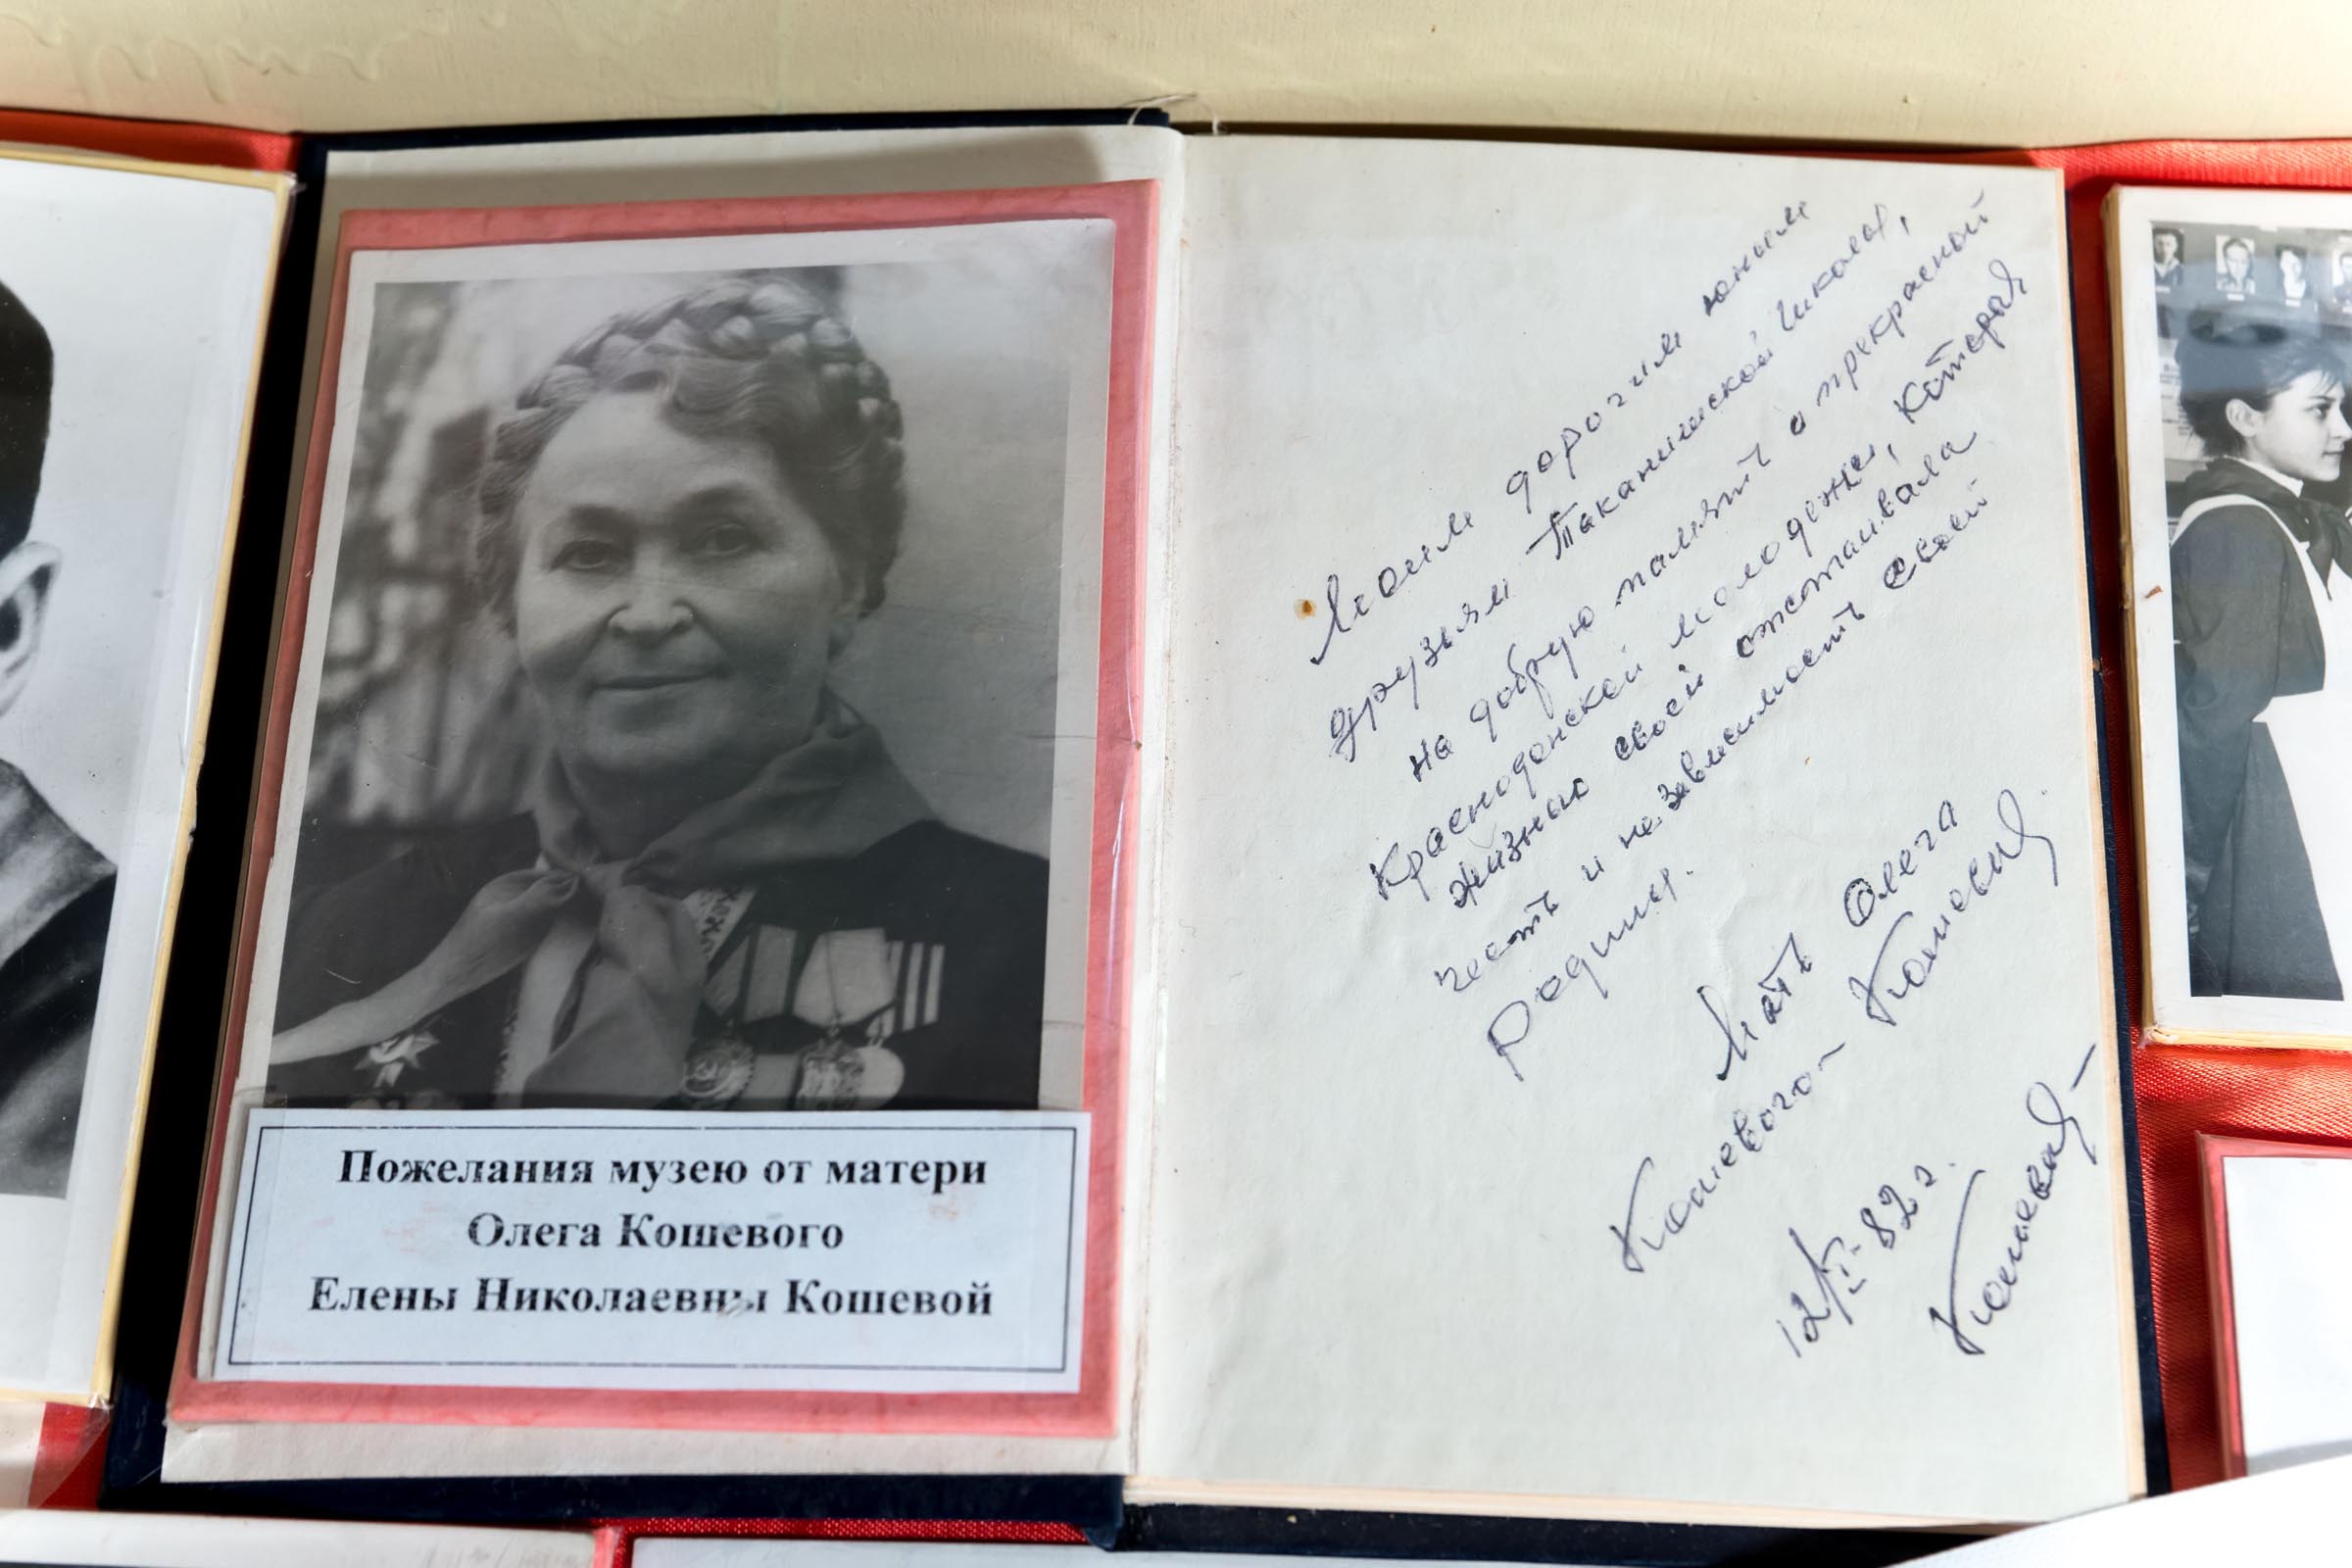 Пожелания музею от матери
Олега Кошевого
Елены Николаевны Кошевой
Моим дорогим юным
друзьям Таканышской школы,
на добрую память о прекрасной
Краснодонской молодежи, которая
жизнью своей отстаивала
честь и независимость своей
Родины.
Мать Олега
Кошевого Кошевая
12/II-82 г.
Кошевая